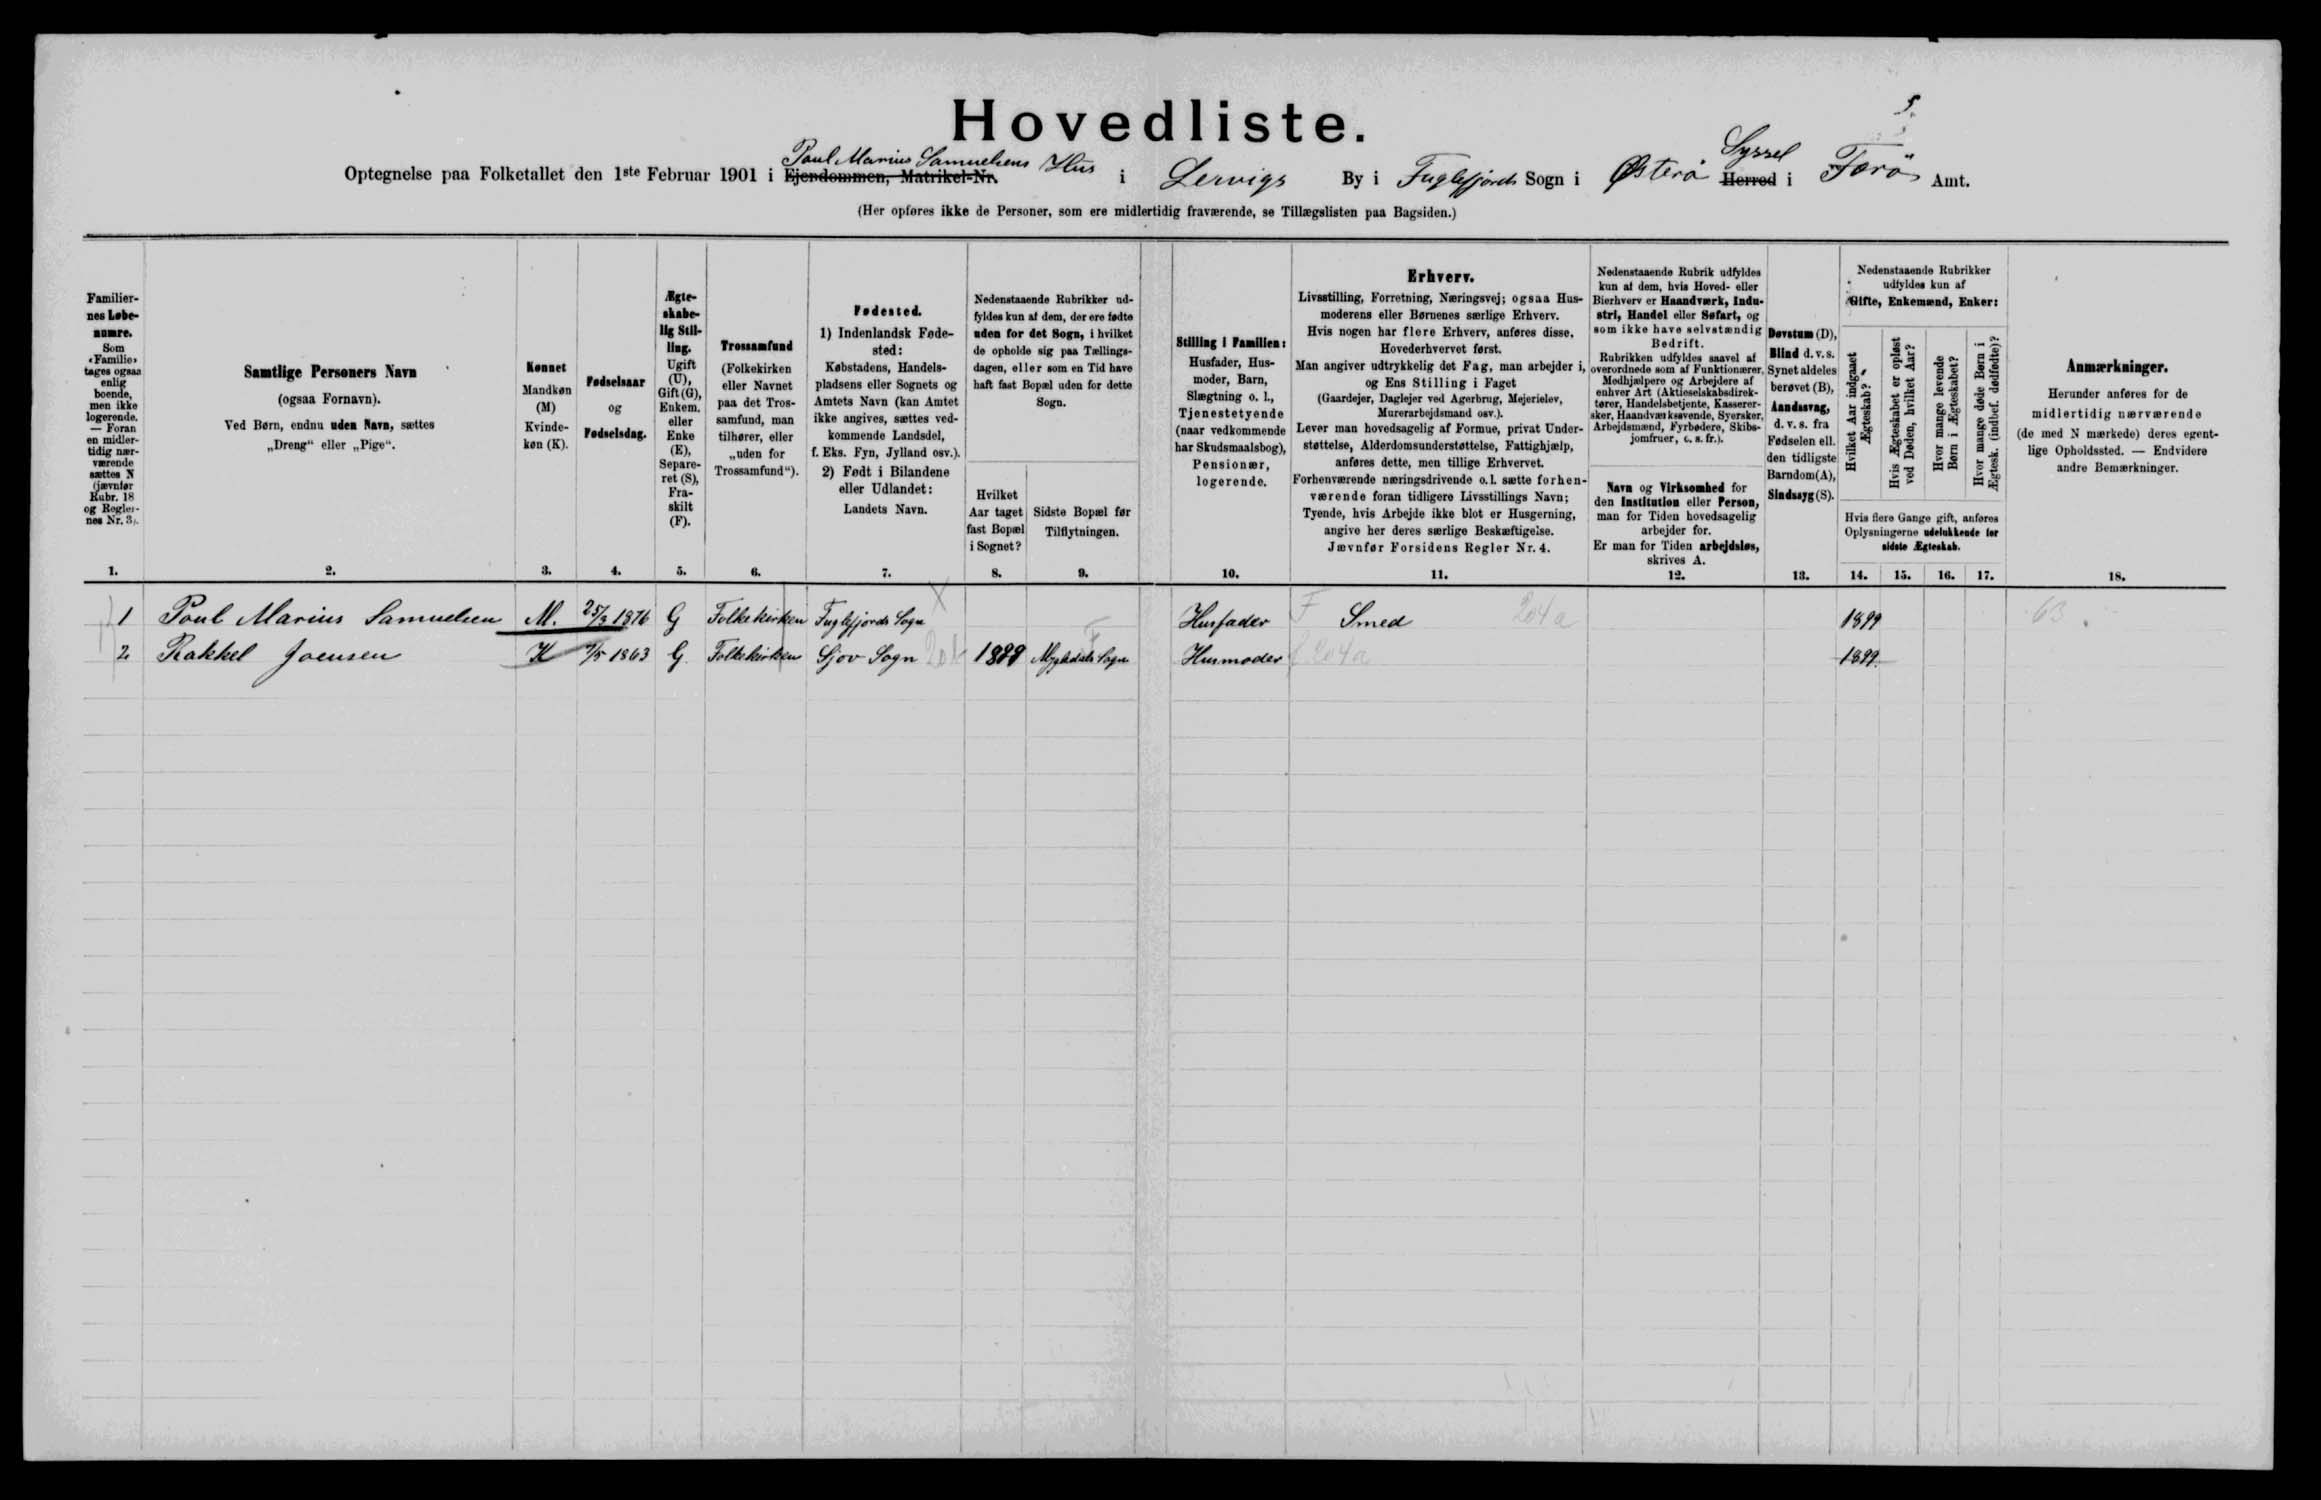 Hovedliste.
Optegnelse paa Folketallet den 1ste Februar 1901 i Ejendommen, Matrikel-Nr. Poul Marius Samuelsens Hus i Lervigs By i Fuglefjords Sogn i Østerö Herred Syssel i Færö Amt.
(Her opføres ikke de Personer, som ere midlertidig fraværende, se Tillægslisten paa Bagsiden.)
Familier-
nes Løbe-
numre.
Som
«Familie»
tages ogsaa
enlig
boende,
men ikke
logerende.
— Foran
en midler-
tidig nær-
værende
sættes N
(jævnfør
Rubr. 18
og Regler-
nes Nr. 3).
1.
Samtlige Personers Navn
(ogsaa Fornavn).
Ved Børn, endnu uden Navn, sættes
„Dreng“ eller „Pige“.
2.
Kønnet
Mandkøn
(M)
Kvinde-
køn (K).
3.
Fødselsaar
og
Fødselsdag.
4.
Ægte-
skabe-
lig Stil-
ling.
Ugift
(U),
Gift (G),
Enkem.
eller
Enke
(E),
Separe-
ret (S),
Fra-
skilt
(F).
5.
Trossamfund
(Folkekirken
eller Navnet
paa det Tros-
samfund, man
tilhører, eller
„uden for
Trossamfund“).
6.
Fødested.
1) Indenlandsk Føde-
sted:
Købstadens, Handels-
pladsens eller Sognets og
Amtets Navn (kan Amtet
ikke angives, sættes ved-
kommende Landsdel,
f. Eks. Fyn, Jylland osv.).
2) Født i Bilandene
eller Udlandet:
Landets Navn.
7.
Nedenstaaende Rubrikker ud-
fyldes kun af dem, der ere fødte
uden for det Sogn, i hvilket
de opholde sig paa Tællings-
dagen, eller som en Tid have
haft fast Bopæl uden for dette
Sogn.
Hvilket
Aar taget
fast Bopæl
i Sognet?
8.
Sidste Bopæl før
Tilflytningen.
9.
Stilling i Familien:
Husfader, Hus-
moder, Barn,
Slægtning o. l.,
Tjenestetyende
(naar vedkommende
har Skudsmaalsbog),
Pensionær,
logerende.
10.
Erhverv.
Livsstilling, Forretning, Næringsvej; ogsaa Hus-
moderens eller Børnenes særlige Erhverv.
Hvis nogen har flere Erhverv, anføres disse,
Hovederhvervet først.
Man angiver udtrykkelig det Fag, man arbejder i,
og Ens Stilling i Faget
(Gaardejer, Daglejer ved Agerbrug, Mejerielev,
Murerarbejdsmand osv.).
Lever man hovedsagelig af Formue, privat Under-
støttelse, Alderdomsunderstøttelse, Fattighjælp,
anføres dette, men tillige Erhvervet.
Forhenværende næringsdrivende o. l. sætte forhen-
værende foran tidligere Livsstillings Navn;
Tyende, hvis Arbejde ikke blot er Husgerning,
angive her deres særlige Beskæftigelse.
Jævnfør Forsidens Regler Nr. 4.
11.
Nedenstaaende Rubrik udfyldes
kun af dem, hvis Hoved- eller
Bierhverv er Haandværk, Indu-
stri, Handel eller Søfart, og
som ikke have selvstændig
Bedrift.
Rubrikken udfyldes saavel af
overordnede som af Funktionærer,
Medhjælpere og Arbejdere af
enhver Art (Aktieselskabsdirek-
tører, Handelsbetjente, Kasserer-
sker, Haandværkssvende, Syersker,
Arbejdsmænd, Fyrbødere, Skibs-
jomfruer, o. s. fr.).
Navn og Virksomhed for
den Institution eller Person,
man for Tiden hovedsagelig
arbejder for.
Er man for Tiden arbejdsløs,
skrives A.
12.
Døvstum (D),
Blind d. v. s.
Synet aldeles
berøvet (B),
Aandssvag,
d. v. s. fra
Fødselen ell.
den tidligste
Barndom (A),
Sindssyg (S).
13.
Nedenstaaende Rubrikker
udfyldes kun af
Gifte, Enkemænd, Enker:
Hvilket Aar indgaaet
Ægteskab?
Hvis Ægteskabet er opløst
ved Døden, hvilket Aar?
Hvor mange levende
Børn i Ægteskabet?
Hvor mange døde Børn i
Ægtesk. (indbef. dødfødte)?
Hvis flere Gange gift, anføres
Oplysningerne udelukkende for
sidste Ægteskab.
14. 15. 16. 17.
Anmærkninger.
Herunder anføres for de
midlertidig nærværende
(de med N mærkede) deres egent-
lige Opholdssted. — Endvidere
andre Bemærkninger.
18.
1 Poul Marius Samuelsen M. 25/3 1876 G Folkekirken Fuglefjords Sogn Husfader F Smed 204a 1899 63
2 Rakkel Joensen K 1863 G. Folkekirken Sjov Sogn 1899 Husmoder 204a 1899.